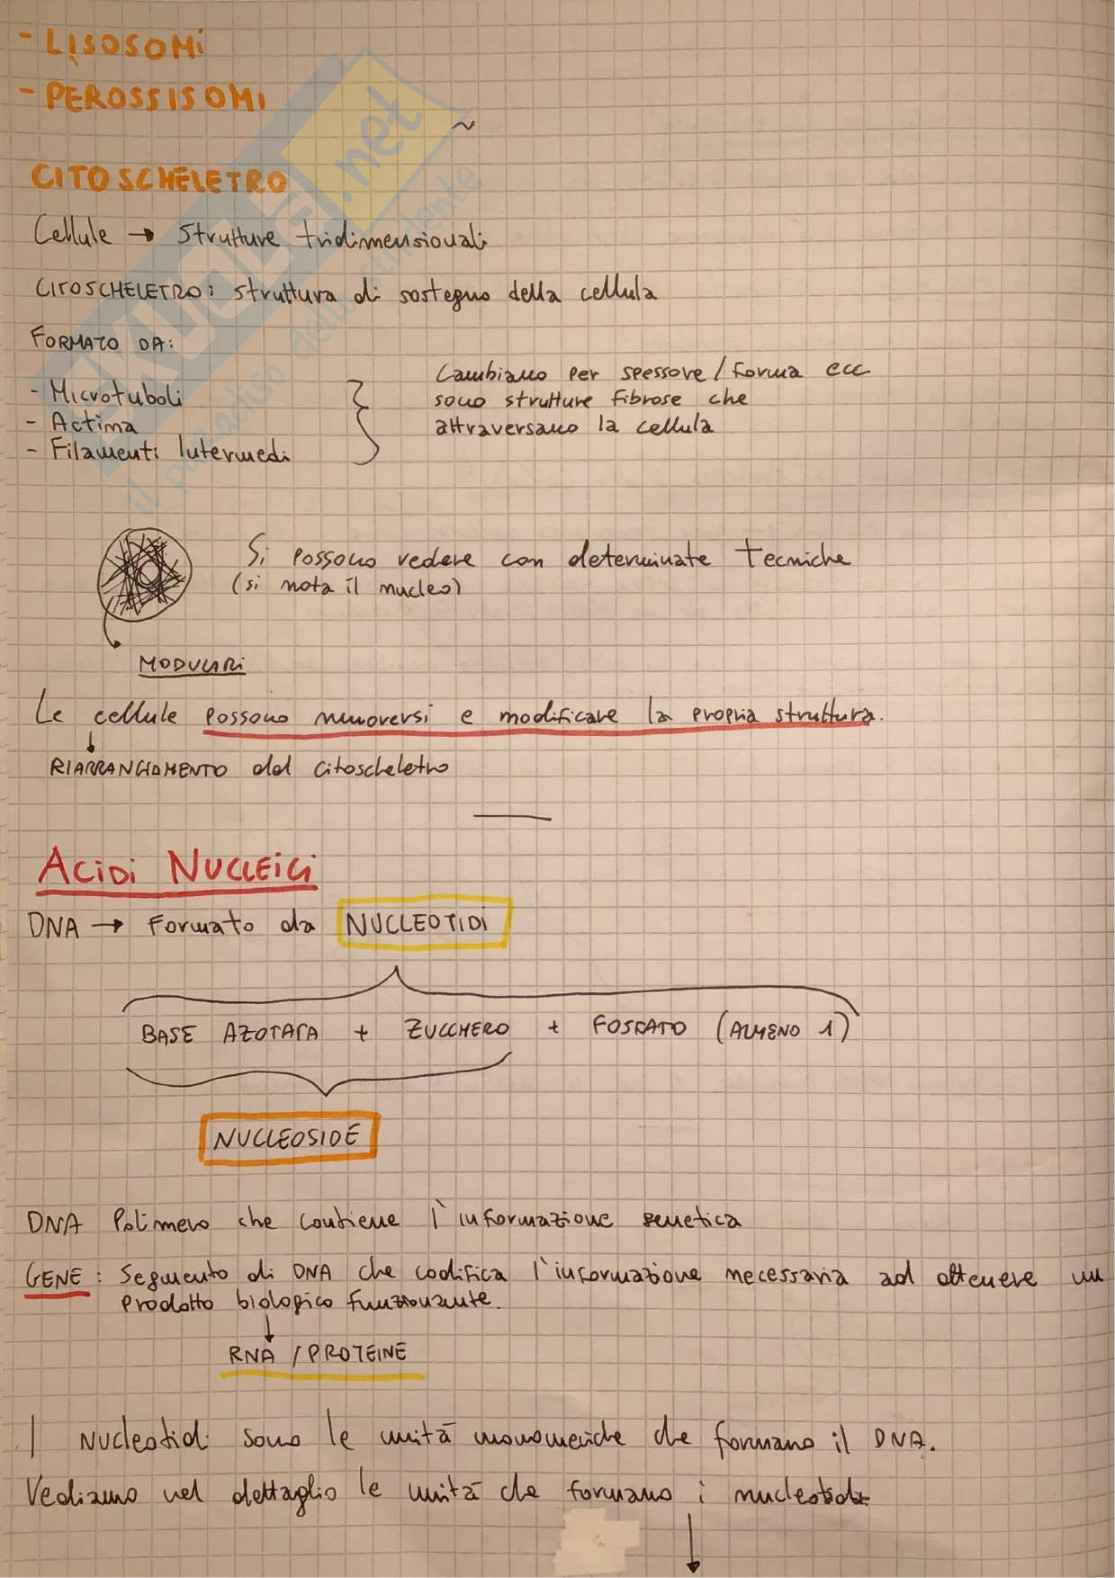 - LISOSOMI
- PEROSSISOMI
~
CITOSCHELETRO
Cellule → Strutture tridimensionali
CITOSCHELETRO: struttura di sostegno della cellula
FORMATO DA:
- Microtuboli
- Actina
- Filamenti Intermedi
Cambiano per spessore / forma ecc
sono strutture fibrose che
attraversano la cellula
Si possono vedere con determinate tecniche
(si nota il nucleo)
MODULARI
Le cellule possono muoversi e modificare la propria struttura.
RIARRANGIAMENTO del citoscheletro
ACIDI NUCLEICI
DNA → Formato da NUCLEOTIDI
BASE AZOTATA + ZUCCHERO + FOSFATO (ALMENO 1)
NUCLEOSIDE
DNA Polimero che contiene l'informazione genetica
GENE: Segmento di DNA che codifica l'informazione necessaria ad ottenere un
prodotto biologico funzionante.
RNA / PROTEINE
I Nucleotidi sono le unità monomeriche che formano il DNA.
Vediamo nel dettaglio le unità che formano i nucleotidi
SKUOLA.net
il paradiso dello studente